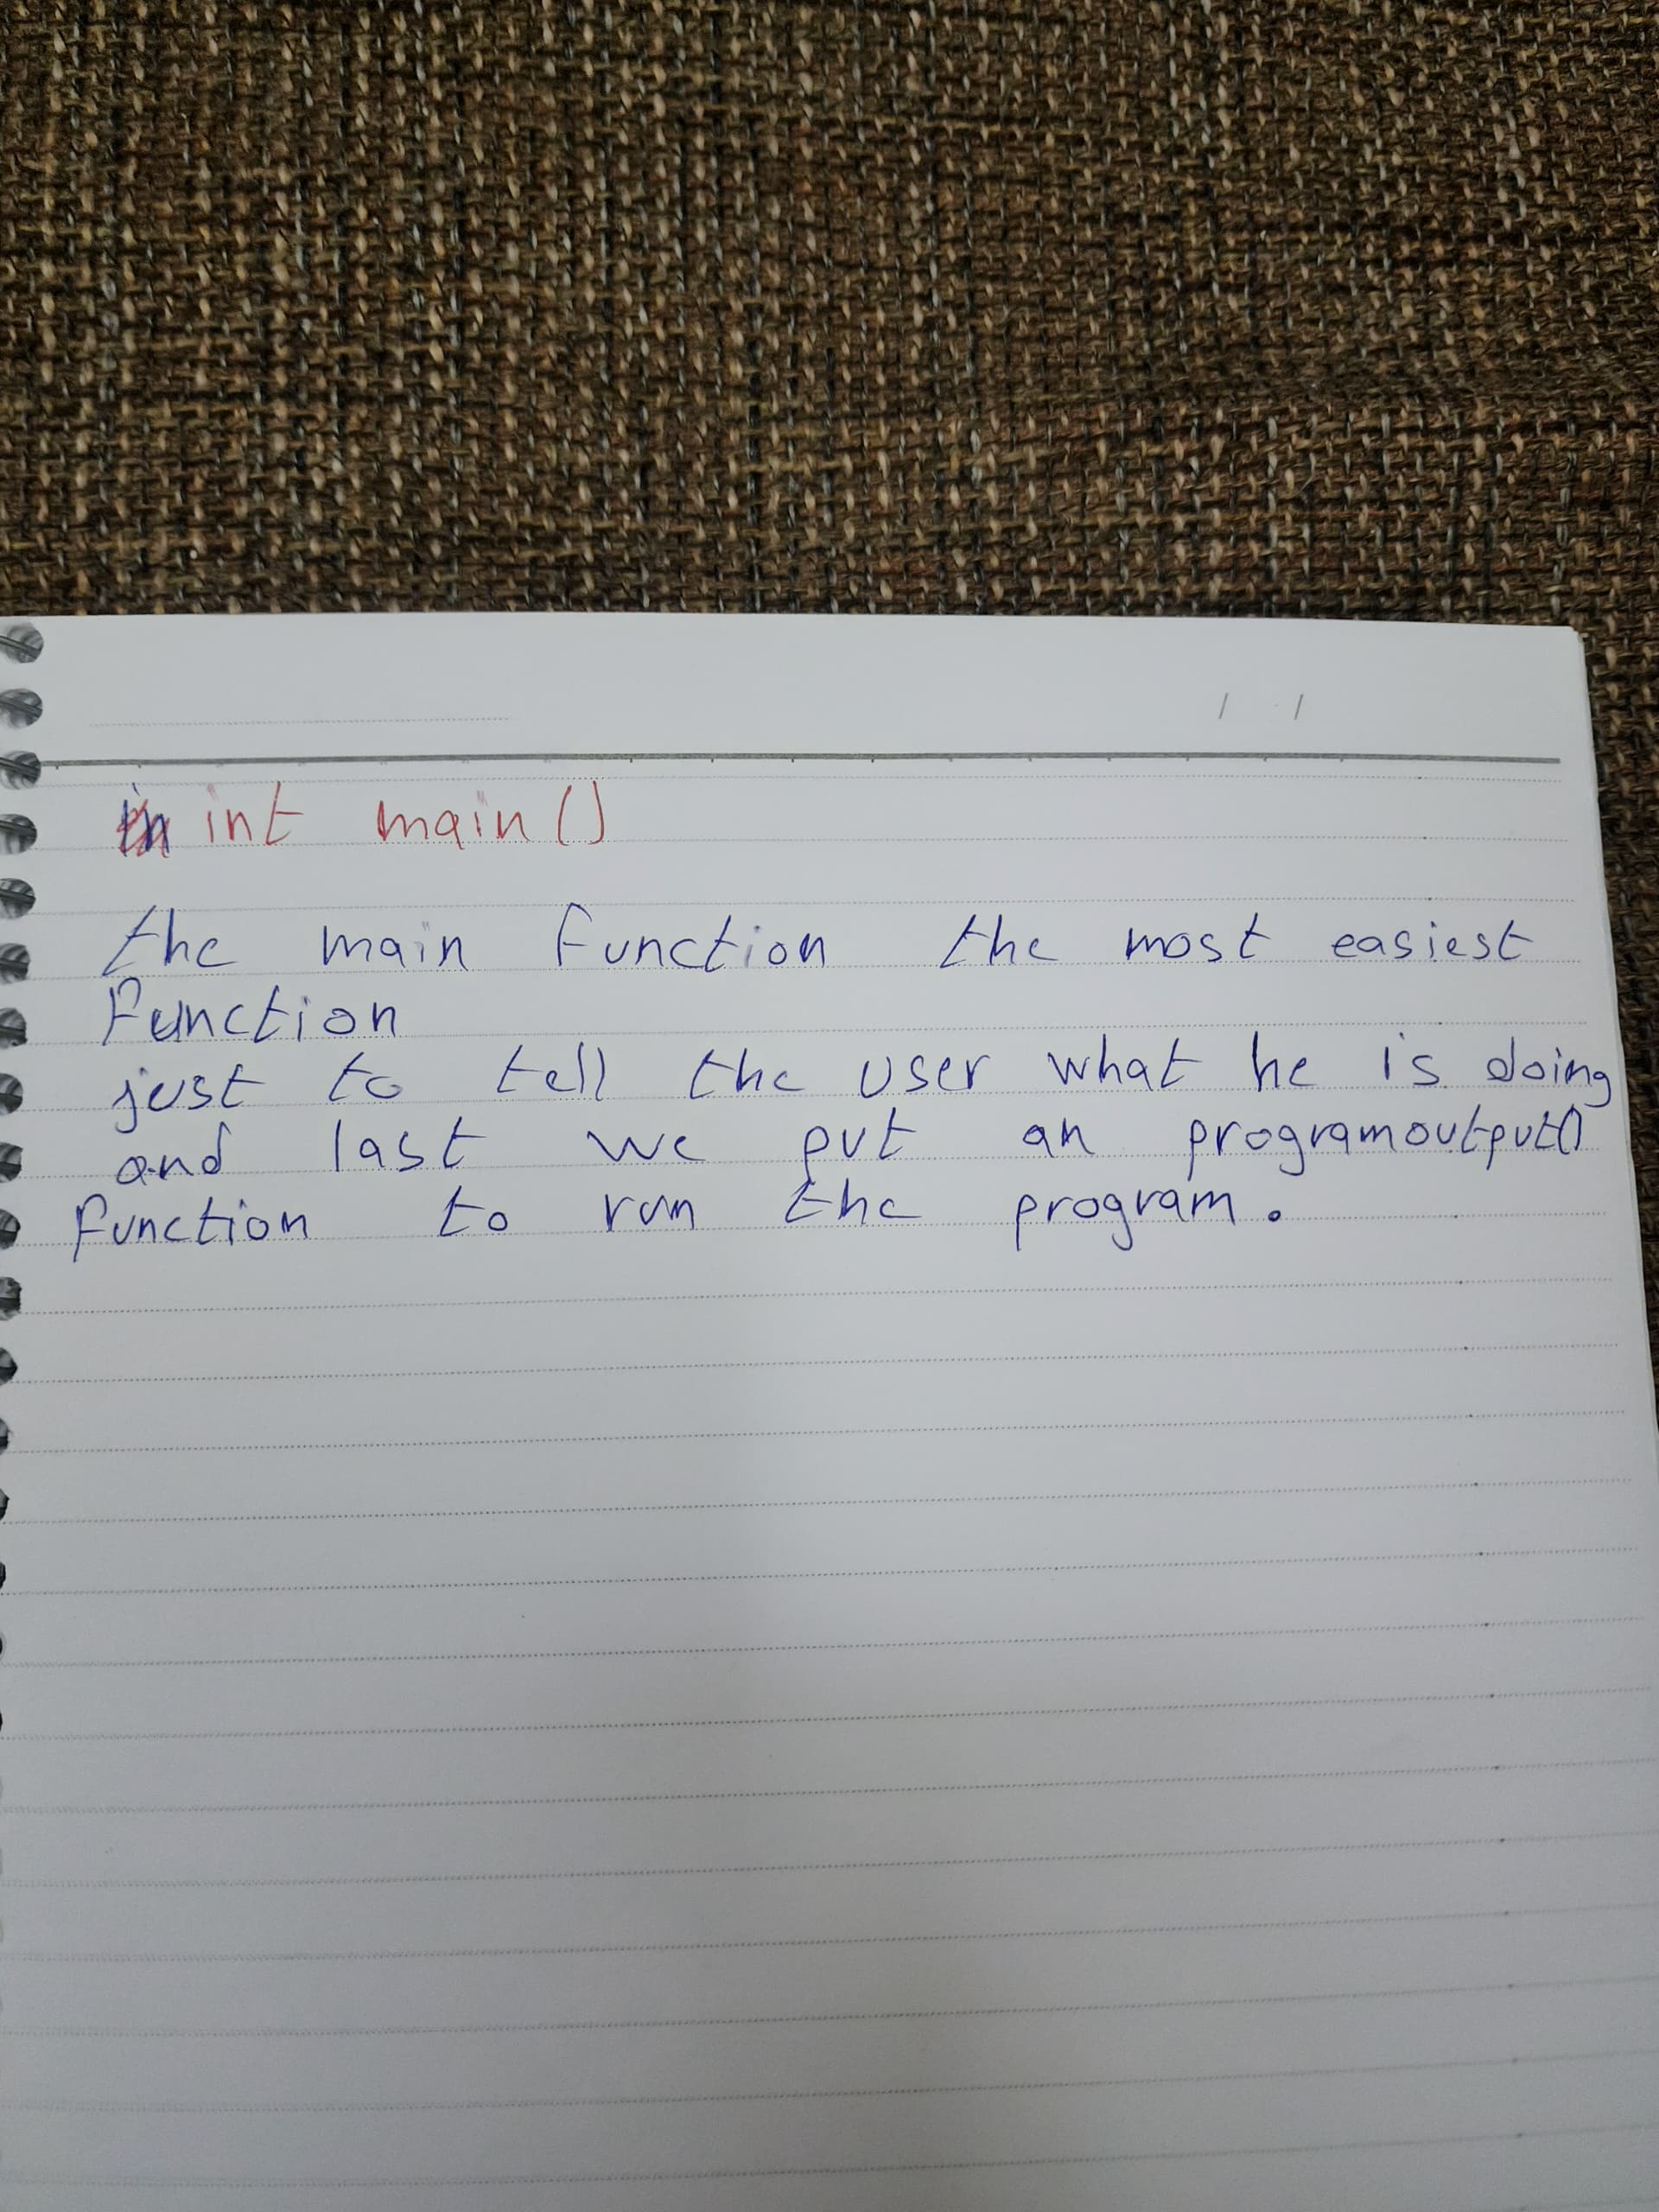 int main()
the main function the most easiest
function
just to tell the user what he is doing
and last we put an programoutput()
function to run the program.